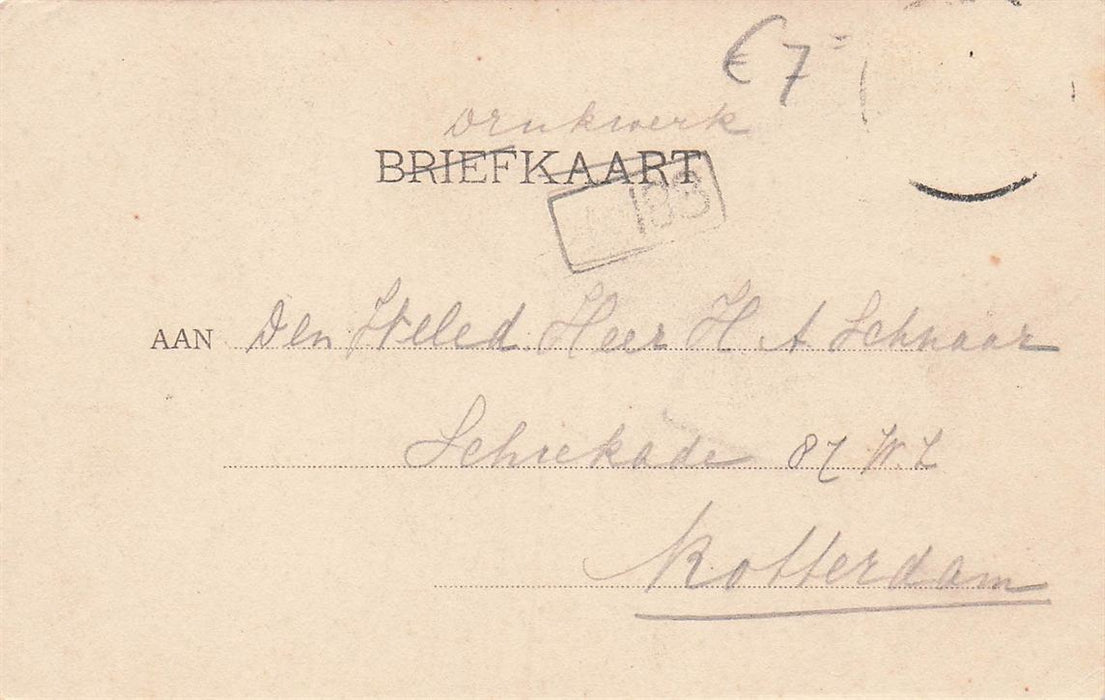 € 7=
Drukwerk
BRIEFKAART
AAN Den Weled. Heer H. A Schnaar
Schiekade 87 W. Z
Rotterdam